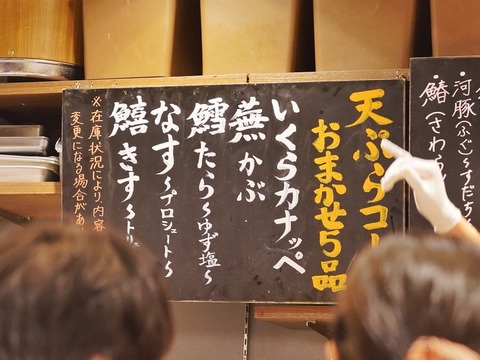 ・河豚(ふぐ)～すだち
・鰆(さわら
天ぷらコー
おまかせ5品
いくらカナッペ
蕪かぶ
鱈たら～ゆず塩～
なす～プロシュート～
鱚きす～トリ
※在庫状況により、内容
変更になる場合があ